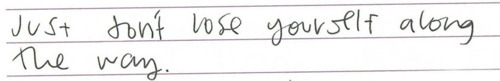 Just don't lose yourself along
the way.